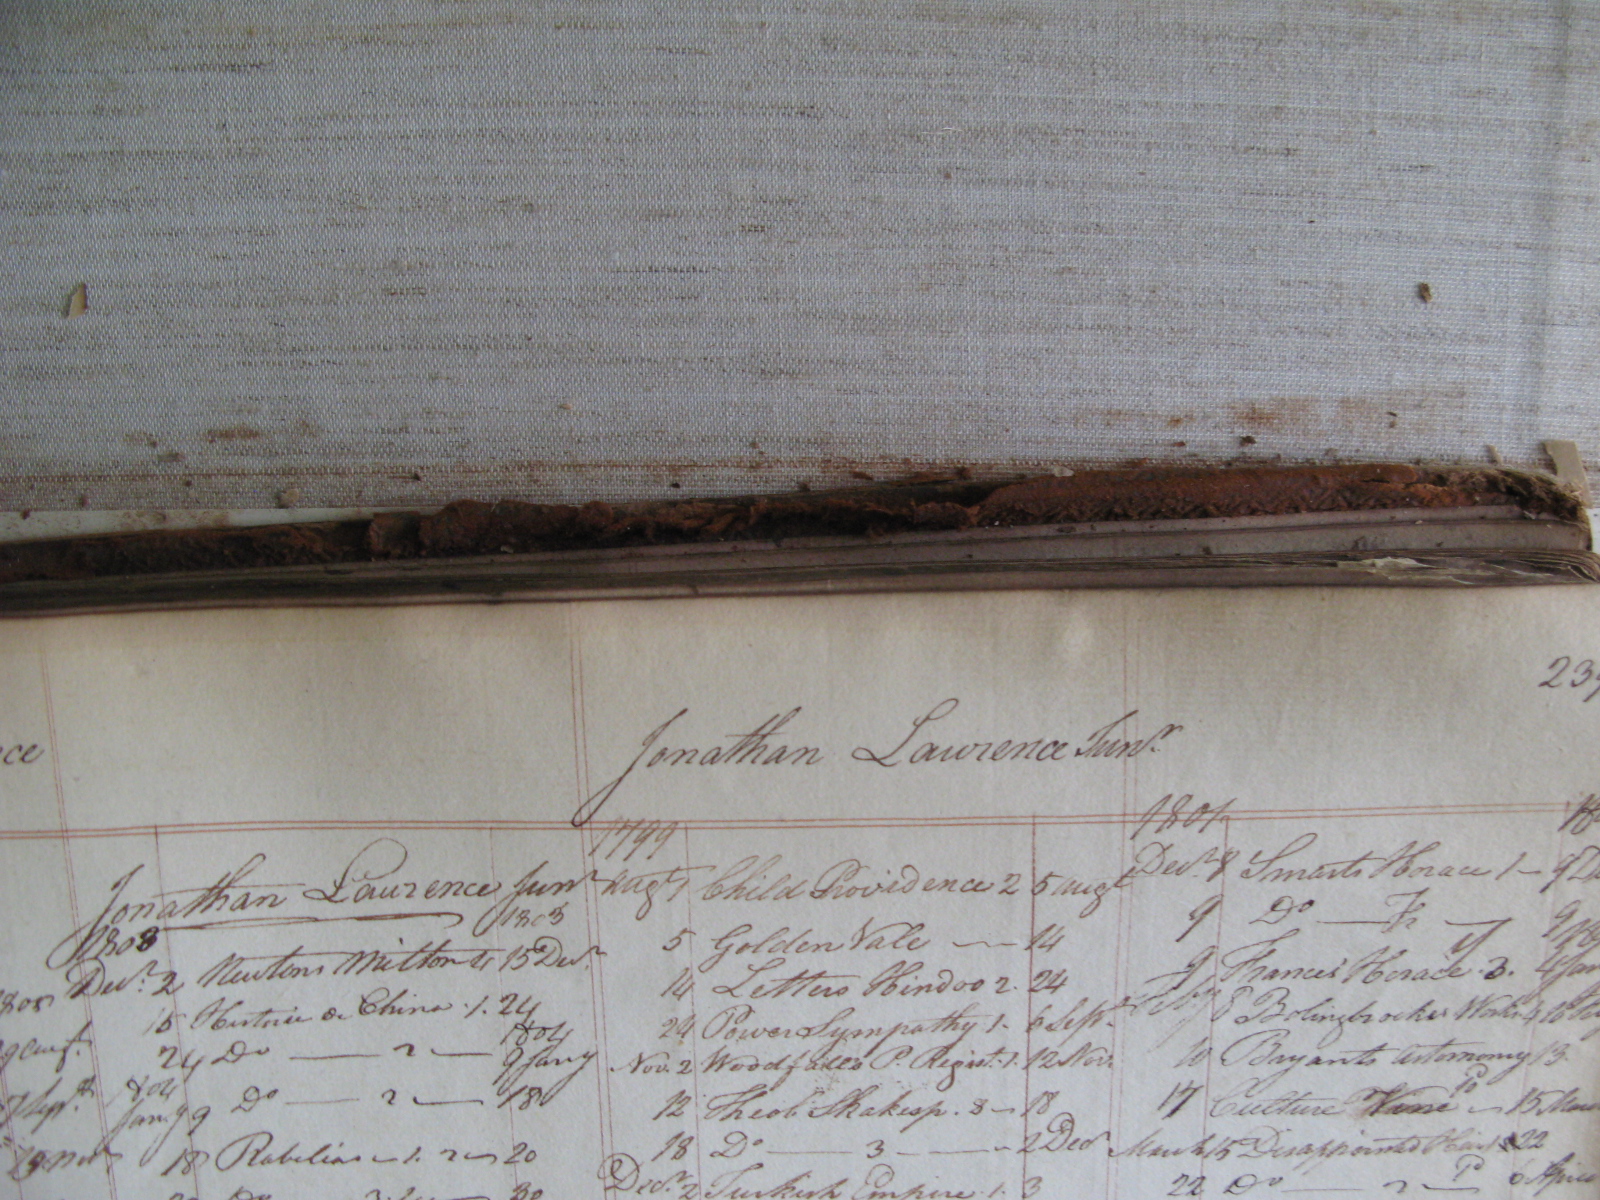 ce
Jonathan Lawrence Junr.
239
Jonathan Lawrence Junr.
1803 1803
Decr. 2 Newtons Milton 15 Decr.
15 Historie de China 1. 24
1804
24 Do 2 9 Jany
1804
Jany 9 Do 2 18
18 Rabelias 1. 2 20
Do 30
1799
Augt 1 Child Providence 2 5 augt
5 Golden Vale 14
14 Letters Hindoo 2. 24
24 Power Sympathy 1. 6 Sept.
Nov. 2 Woodfalls P. Regist. 1. 12 Nov.
12 Theob Shakesp. 8 18
18 Do 3 2 Decr
Decr. 2 Turkish Empire. 1. 3
1801
Decr. 8 Smarts Horace 1 9 De
9 Do 9
9 Francis Horace. 3. 4 Jan
8 Bolingbrokes Works 4 10
10 Bryants 13
17 Culture 15 Mar
March 15 Disappointed 22
22 Do 6 Apr